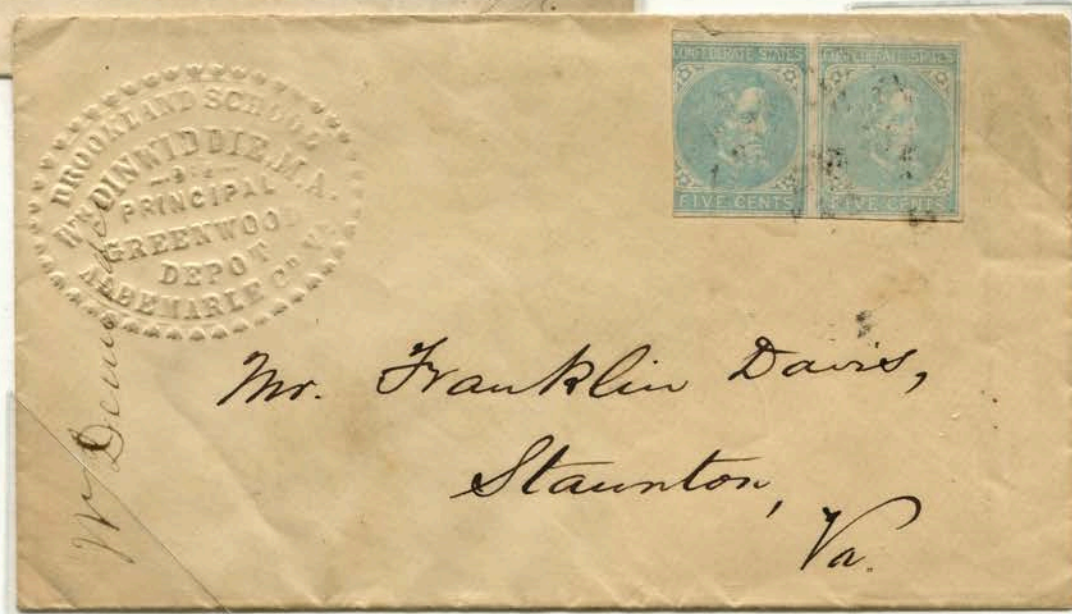 BROOKLAND SCHOOL
Wm DINWIDDIE, M.A.
PRINCIPAL
GREENWOOD
DEPOT
ALBEMARLE CO. VA.
CONFEDERATE STATES
FIVE CENTS
CONFEDERATE STATES
FIVE CENTS
Mr. Franklin Davis,
Staunton,
Va.